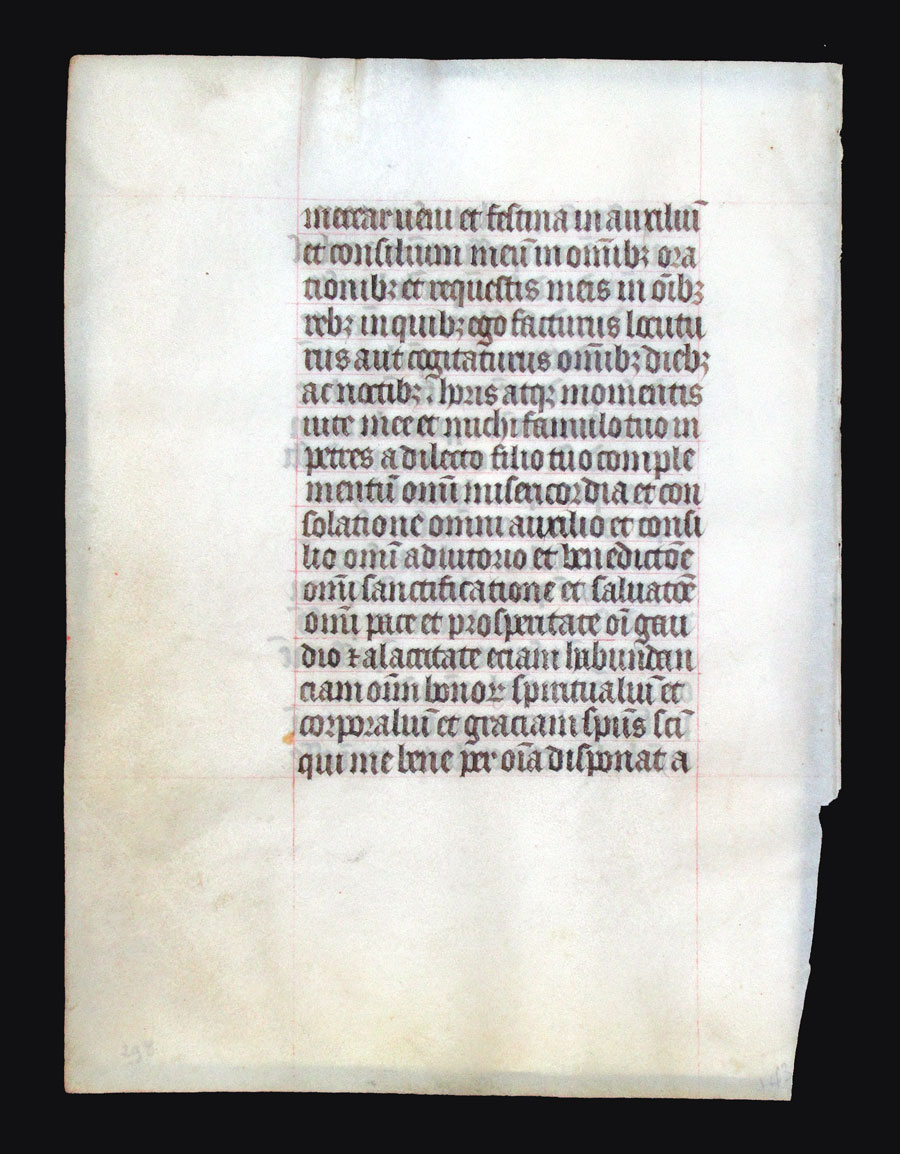 me ueni et festina in auxiliū
et consilium meū in om̄ibꝫ ora
tionibꝫ et requestis meis in oībꝫ
rebꝫ in quibꝫ ego facturus locutu
rus aut cogitaturus om̄ibꝫ diebꝫ
ac noctibꝫ ⁊ horis atqꝫ momentis
uite mee et michi famulo tuo in
petres a dilecto filio tuo comple
mentū omī misericordia et con
solatione omni auxilio et consi
lio omī adiutorio et benedictōe
omī sanctificatione et saluatōe
omī pace et prosperitate oī gau
dio ⁊ alacritate eciam habundan
ciam oīm bonoꝝ spiritualiū et
corporaliū et graciam spūs scī
qui me bene per oīa disponat a
298